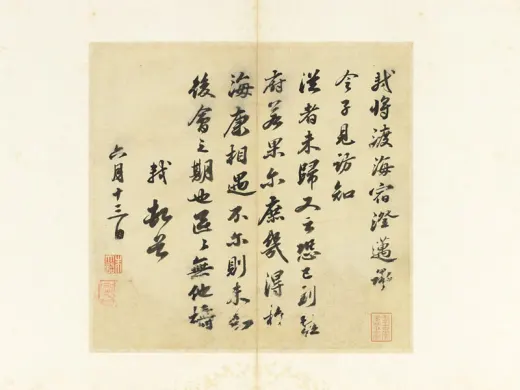 軾將渡海宿澄邁承
令子見訪知
從者未歸又云恐已到桂
府若果尔庶幾得於
海康相遇不尔則未知
後會之期也區々無他禱
軾頓首
六月十三日